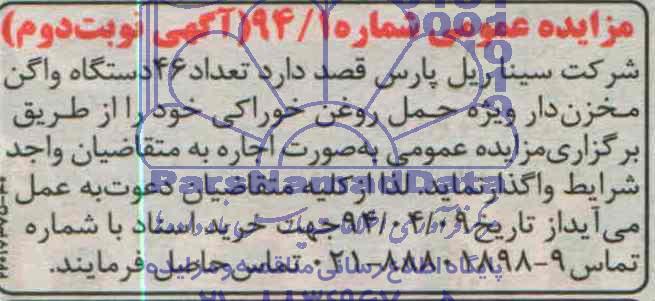 مزایده عمومی شماره ۹۴/۱ (آگهی نوبت دوم)
شرکت سینا ریل پارس قصد دارد تعداد ۴۶ دستگاه واگن
مخزن‌دار ویژه حمل روغن خوراکی خود را از طریق
برگزاری مزایده عمومی به‌صورت اجاره به متقاضیان واجد
شرایط واگذار نماید. لذا از کلیه متقاضیان دعوت به عمل
می‌آید از تاریخ ۹۴/۰۴/۰۹ جهت خرید اسناد با شماره
تماس ۹-۸۸۸۰۱۸۹۸-۰۲۱ تماس حاصل فرمایند.
ParsNamadData